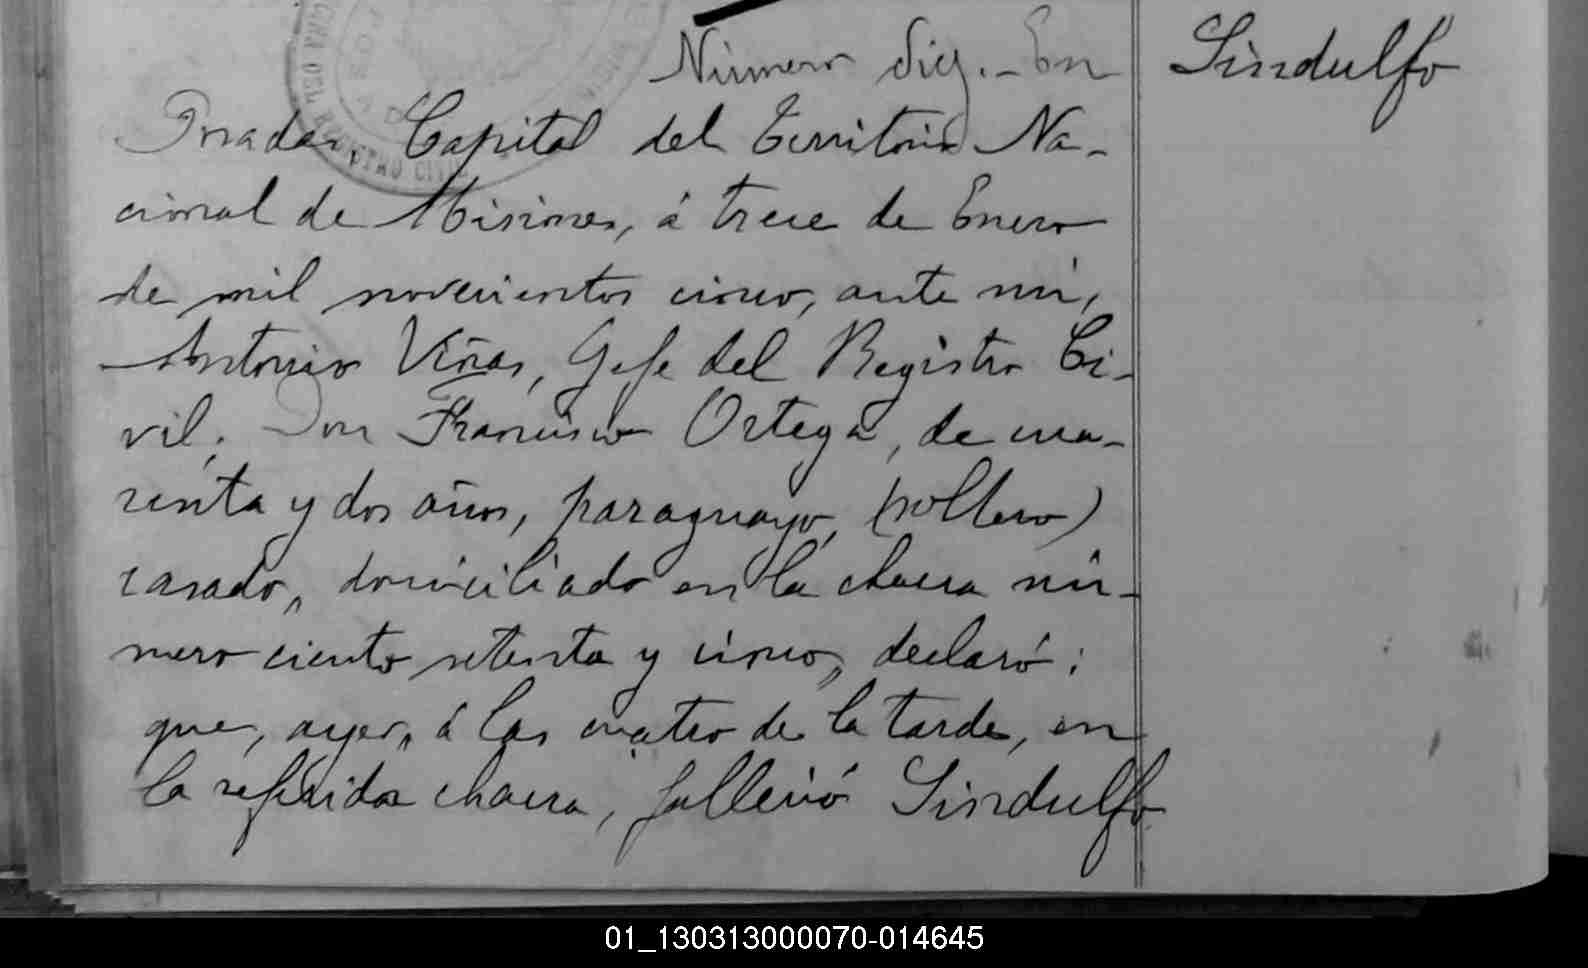 Número diez.- En
Sindulfo
Posadas, Capital del Territorio Na-
cional de Misiones, á trece de Enero
de mil novecientos cinco, ante mí,
Antonio Viñas, Gefe del Registro Ci-
vil, Don Francisco Ortega, de cua-
renta y dos años, paraguayo, (soltero)
casado, domiciliado en la chacra nú-
mero ciento setenta y cinco, declaró:
que, ayer, á las cuatro de la tarde, en
la referida chacra, falleció Sindulfo
DEL REGISTRO CIVIL
01_130313000070-014645